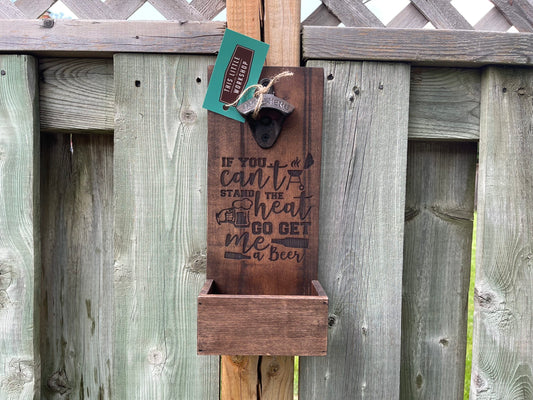 THIS LITTLE
WORKSHOP
IF YOU
can't
STAND THE
heat
GO GET
me
a Beer